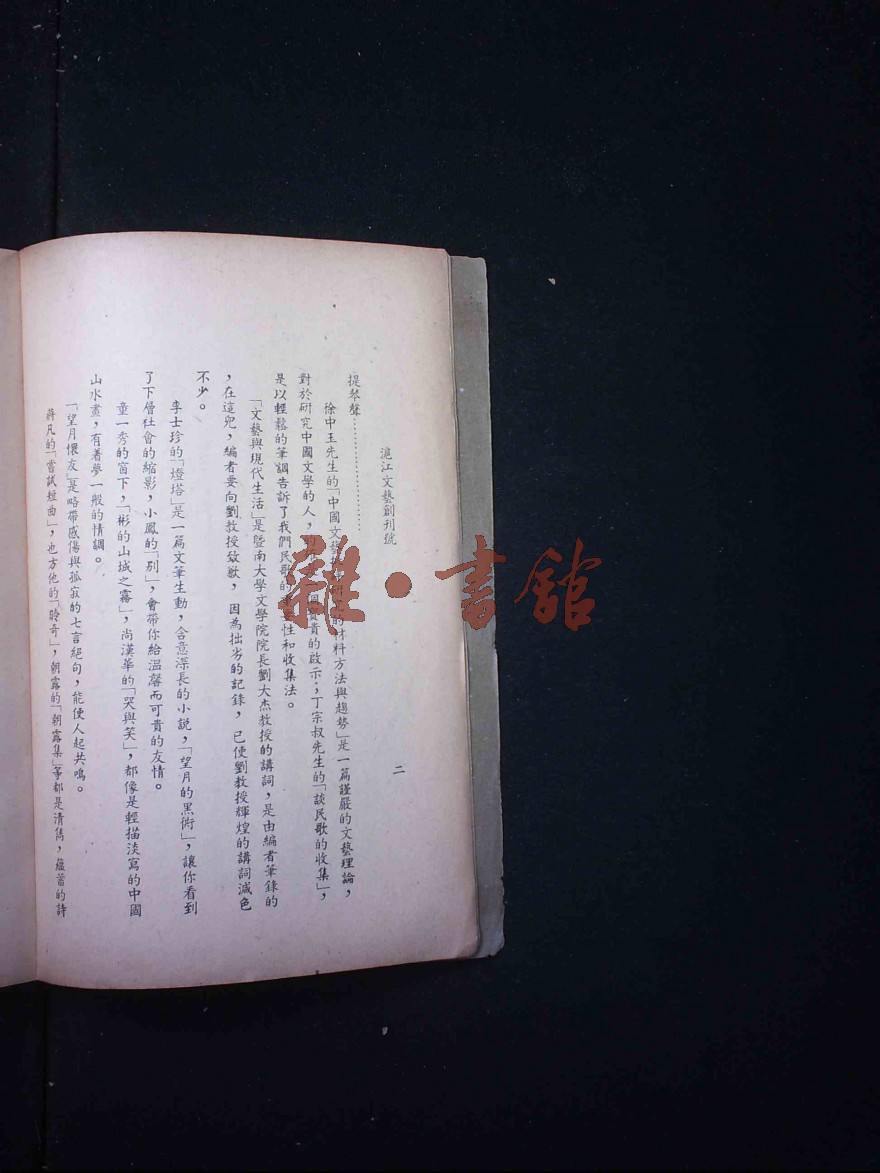 滬江文藝創刊號
二
提琴聲………………………
徐中玉先生的「中國文藝批評研究的材料方法與趨勢」是一篇謹嚴的文藝理論，
對於研究中國文學的人，寶貴的啟示；丁宗叔先生的「談民歌的收集」，
是以輕鬆的筆調告訴了我們民歌的重要性和收集法。
「文藝與現代生活」是暨南大學文學院院長劉大杰教授的講詞，是由編者筆錄的
，在這兒，編者要向劉教授致歉，因為拙劣的記錄，已使劉教授輝煌的講詞減色
不少。
李士珍的「燈塔」是一篇文筆生動，含意深長的小說，「望月的黑術」，讓你看到
了下層社會的縮影，小鳳的「別」，會帶你給溫馨而可貴的友情。
童一秀的窗下，「彬的山城之霧」，尚漢華的「哭與笑」，都像是輕描淡寫的中國
山水畫，有着夢一般的情調。
「望月懷友」是略帶感傷與孤寂的七言絕句，能使人起共鳴。
蔣凡的「嘗試短曲」，也方他的「聆奇」，朝露的「朝露集」等都是清雋，蘊蓄的詩
雜·書館